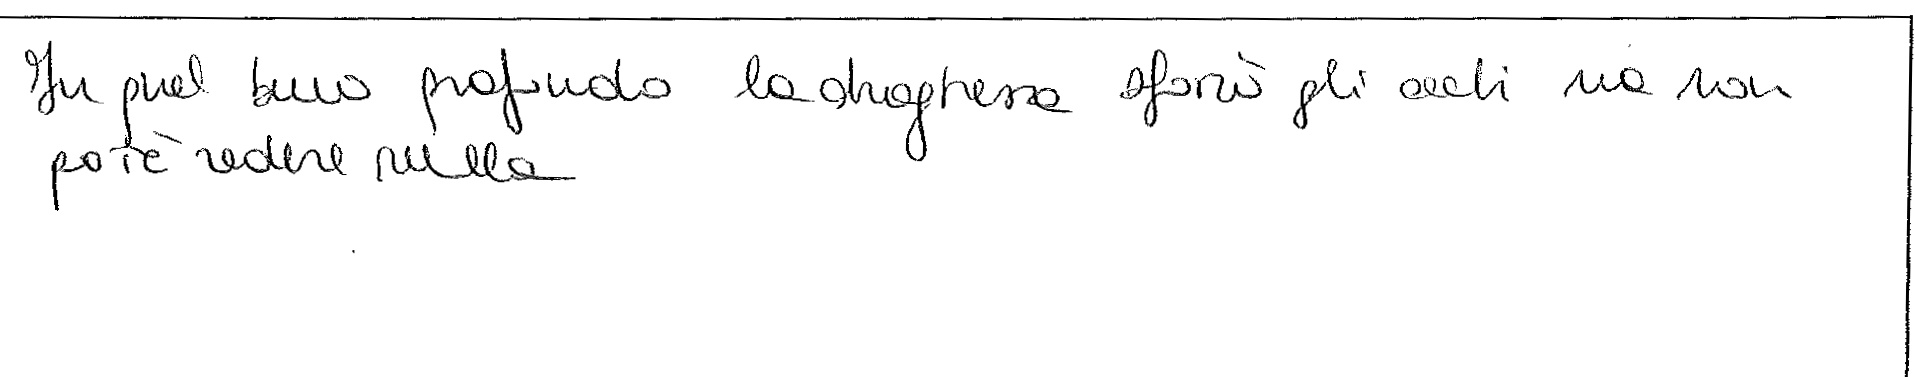 In quel buco profondo la draghessa sforzò gli occhi ma non
potè vedere nulla